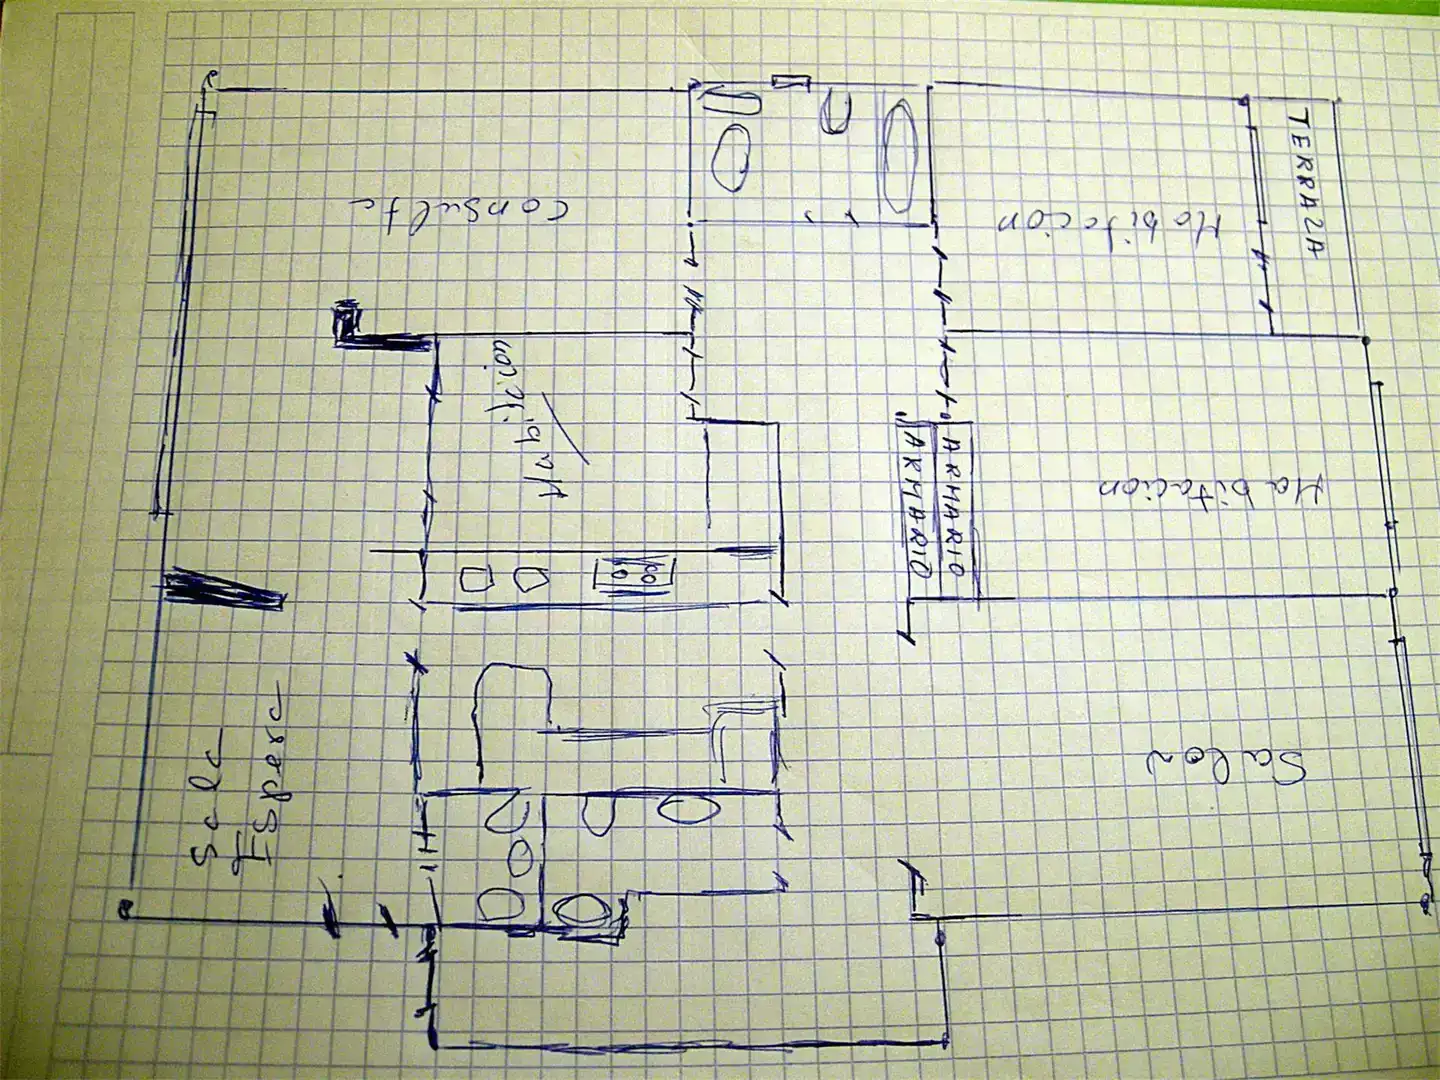 Consulta
Habitacion
TERRAZA
Habitacion
ARMARIO
ARMARIO
Salon
Sala
Espera